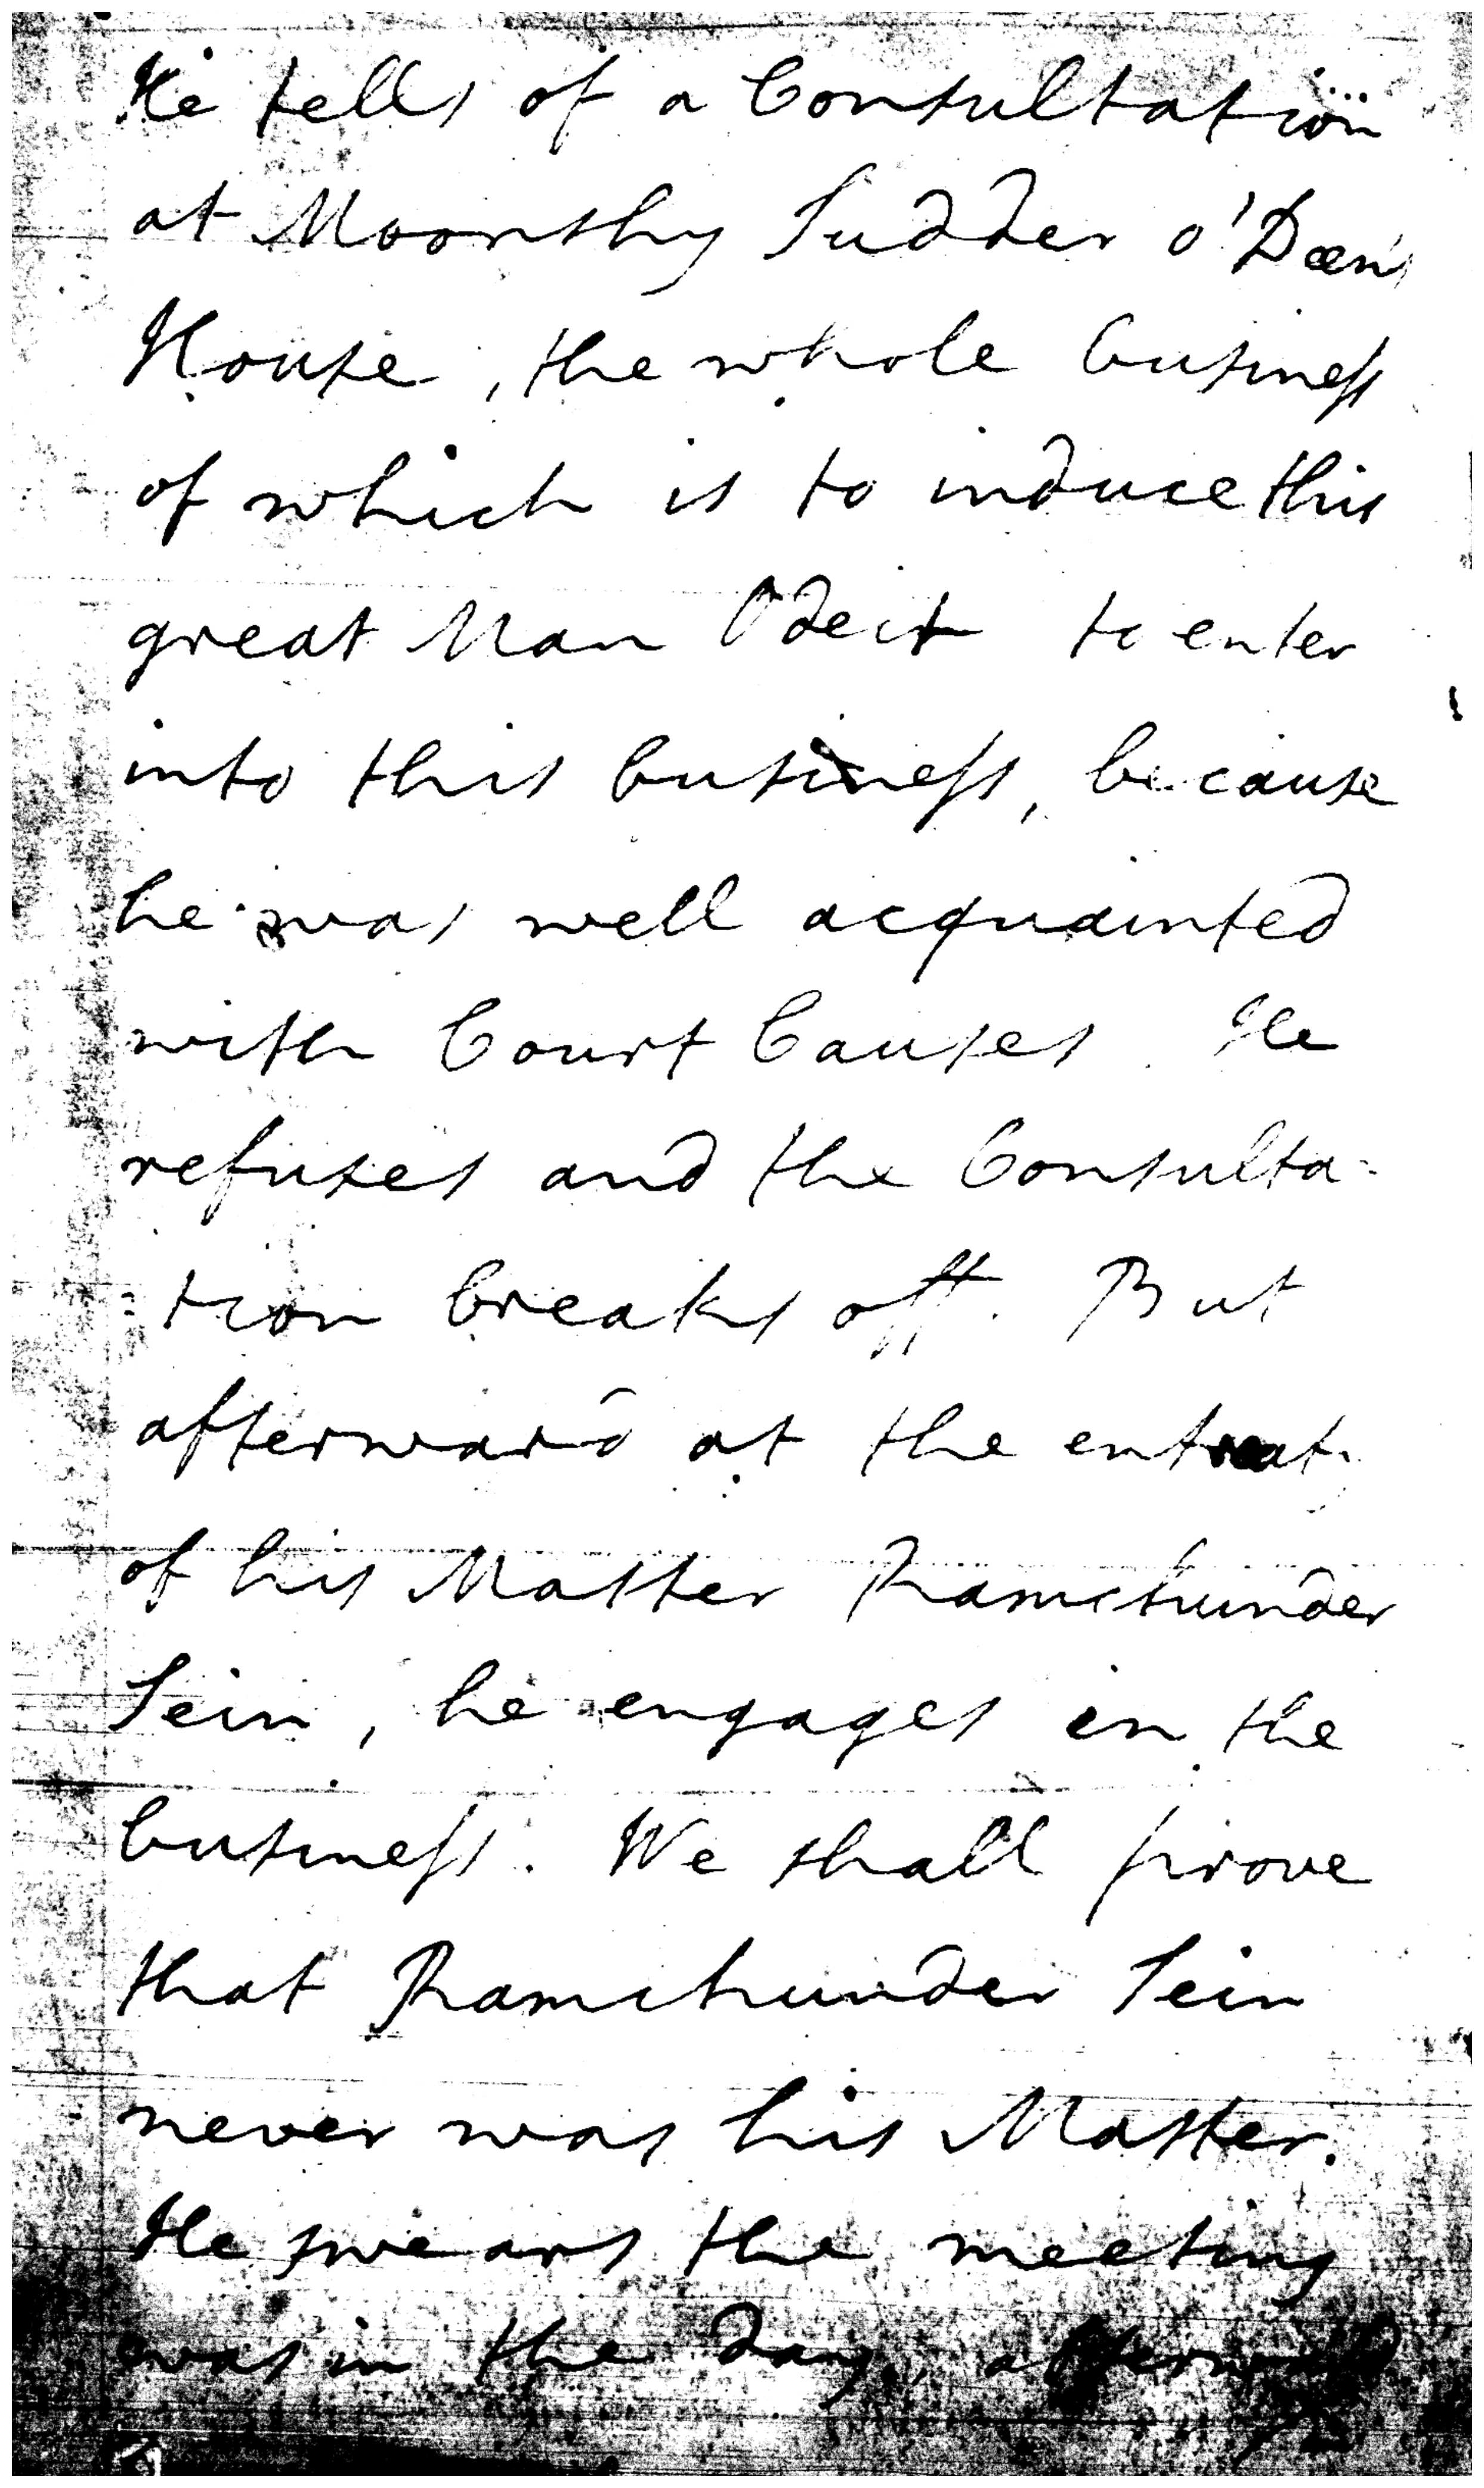 He tells of a Consultation
at Moonshy Sudder o'Dæn's
House, the whole business
of which is to induce this
great Man Odeit to enter
into this business, because
he was well acquainted
with Court Causes. He
refuses and the Consulta-
-tion breaks off. But
afterward at the entreat.
of his Master Ramchunder
Sein, he engages in the
business. We shall prove
that Ramchunder Sein
never was his Master.
He swears the meeting
was in the day,